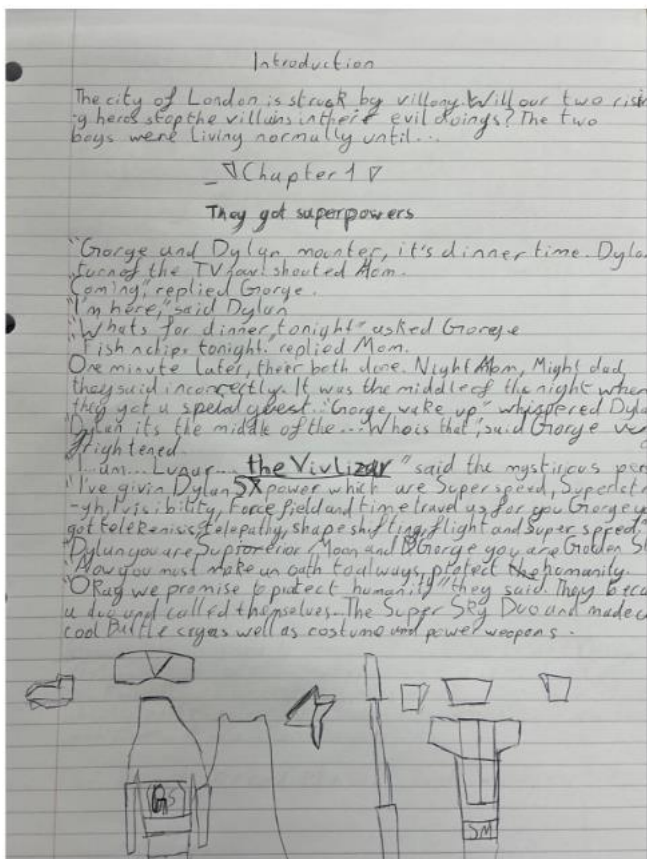 Introduction
The city of London is struck by villony. Will our two risin
-g heros stop the villains in their evil doings? The two
boys were living normally until...
Chapter 1
They got superpowers
"Gorge and Dylan mounter, it's dinner time. Dylan
turn of the TV now! shouted Mom.
Coming," replied Gorge.
"I'm here," said Dylan
"Whats for dinner, tonight" asked George
"Fish n chips tonight. replied Mom.
One minute later, their both done. Night Mom, Night dad,
they said incorrectly. It was the middle of the night when
they got a special guest. "Gorge, wake up" whispered Dyla
Dylan its the middle of the... Who is that", said Gorge
frightened.
I... am... Lunar... the Vivlizar" said the mystirous per
"I've givin Dylan 5x power which are Super speed, Superstr
-gh, Invisibility, Force field and time travel as for you Gorge y
got telekenisis, telepathy, shape shifting, flight and super speed."
"Dylan you are Moon and Gorge you are Golden S
"Now you must make an oath to always, protect the homanity.
"Okay we promise to protect humanity" they said. They beca
a duo and called themselves. The Super Sky Duo and made
cool Battle as well as costume and power weapons.
GS
SM